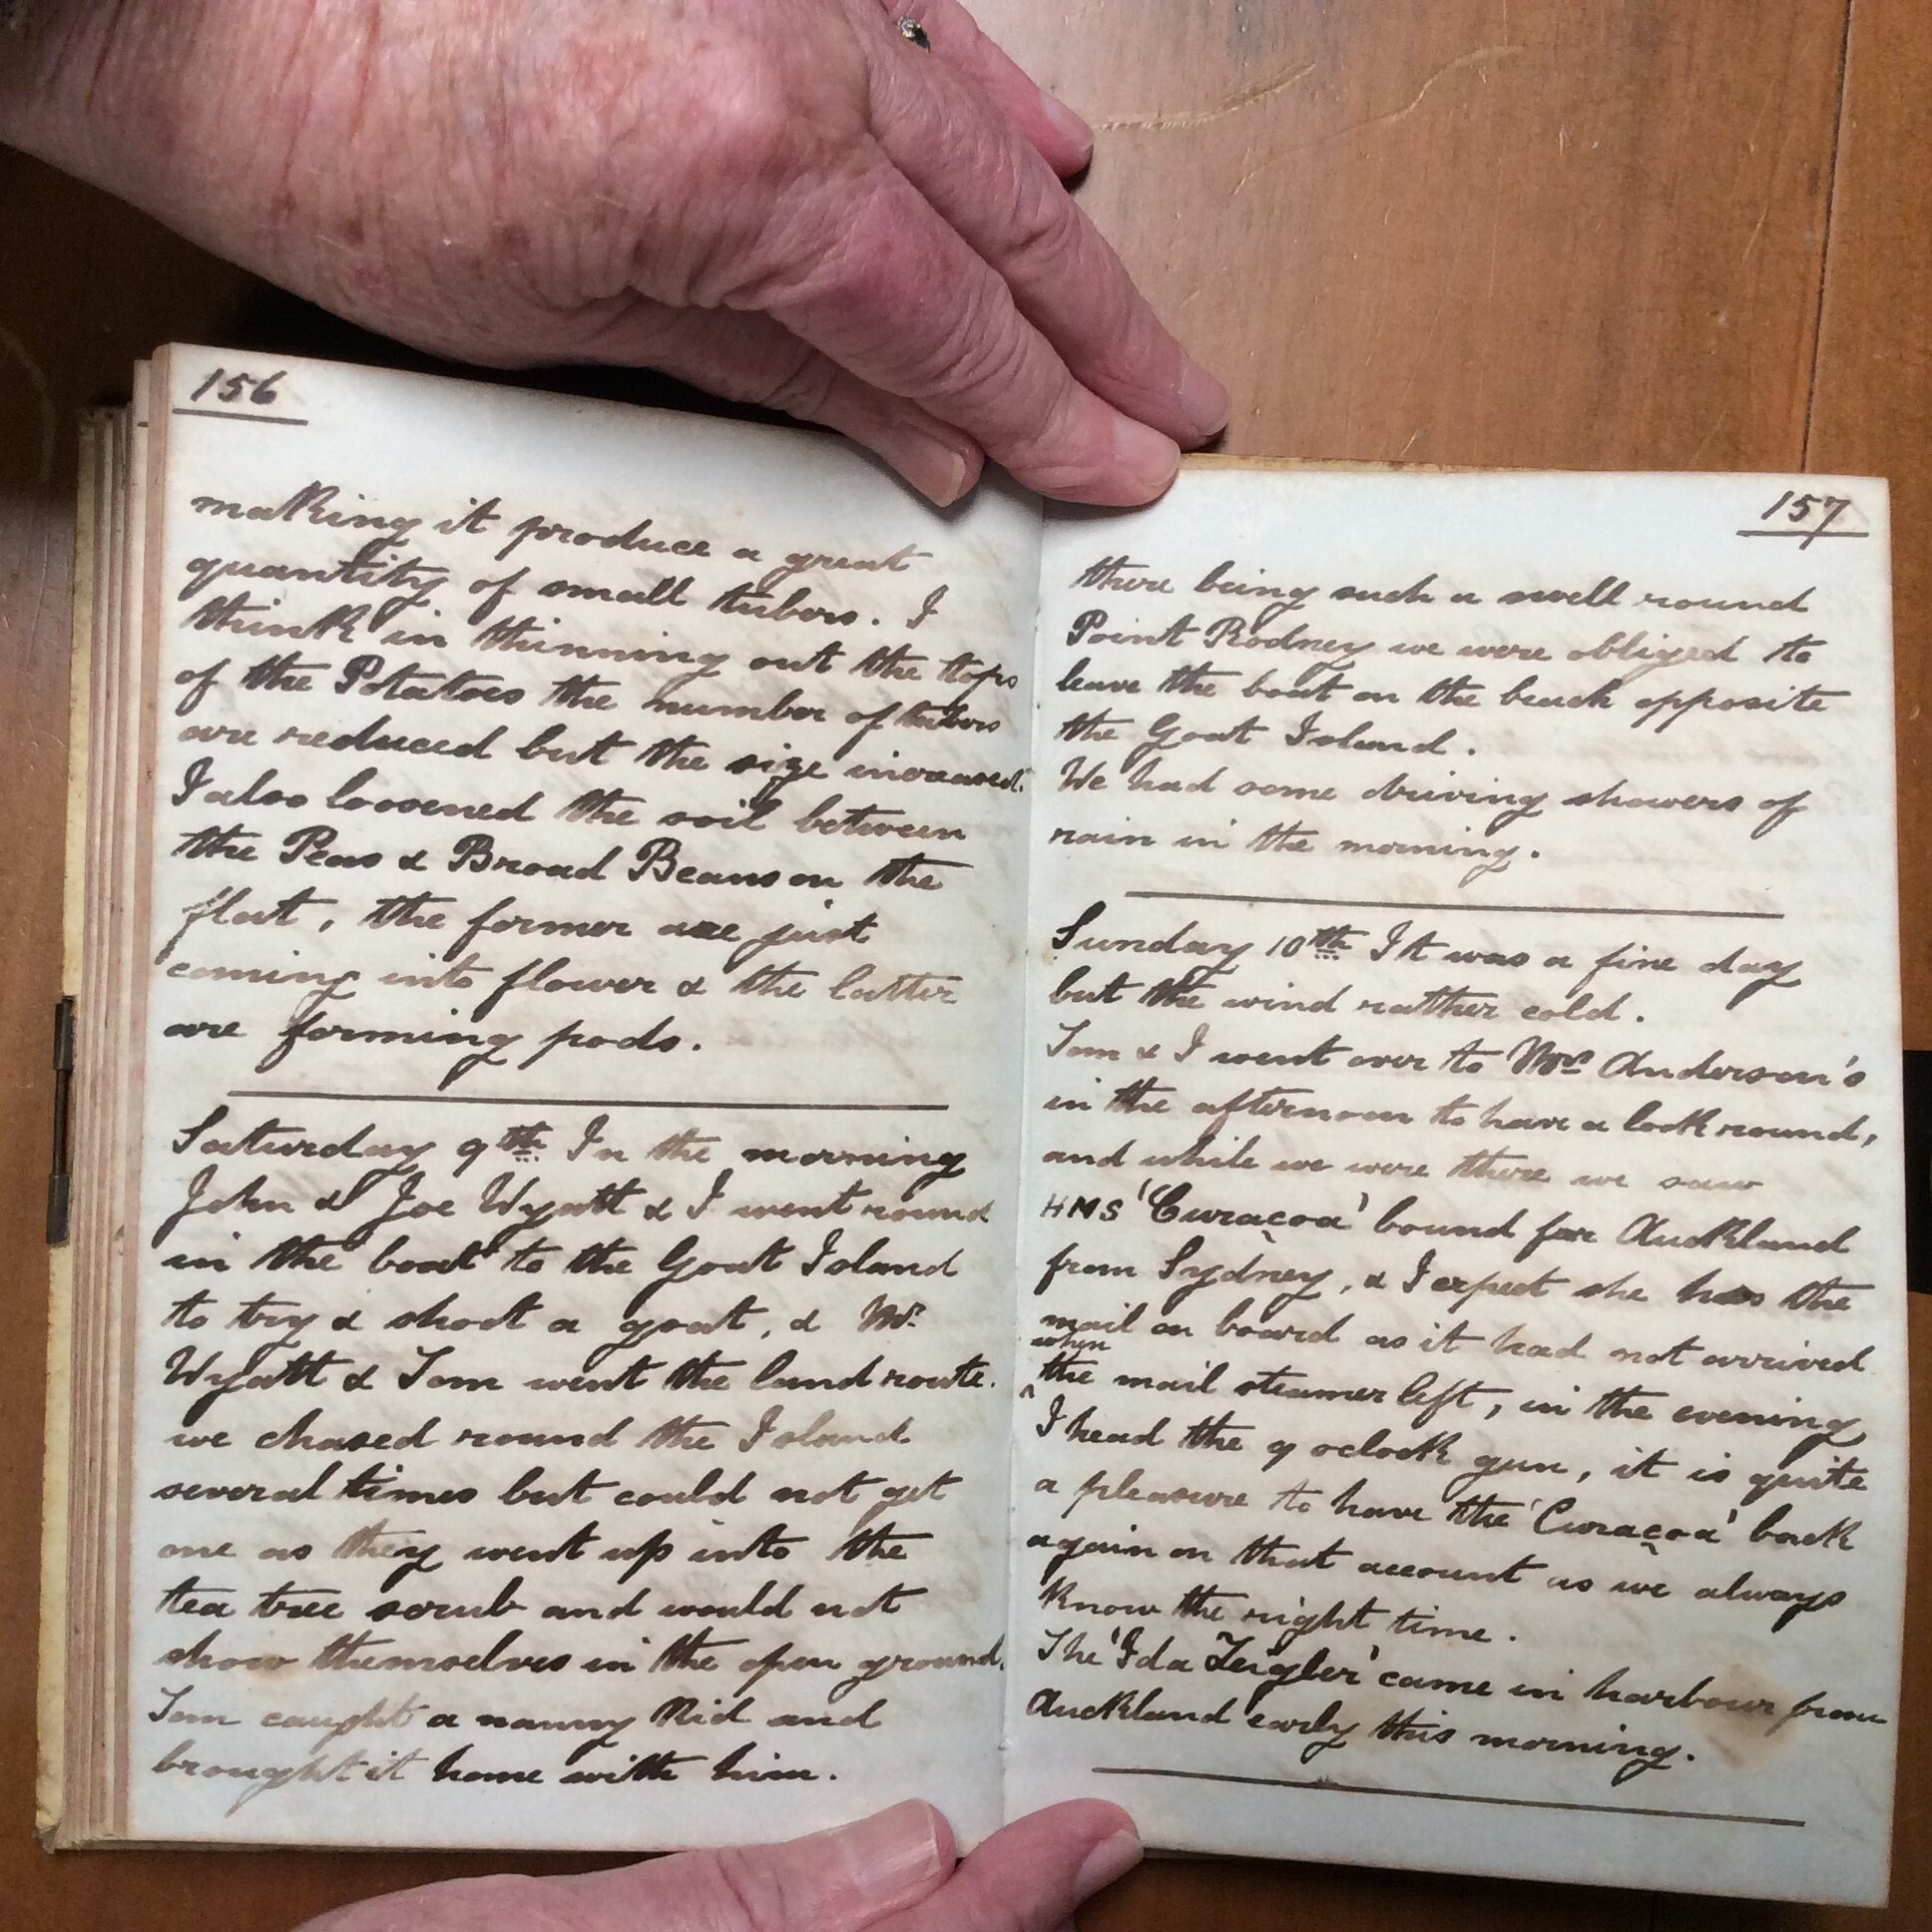 156
making it produce a great
quantity of small tubers. I
think in thinning out the tops
of the Potatoes the number of tubers
are reduced but the size increased.
I also loosened the soil between
the Peas & Broad Beans on the
flat, the former are just
coming into flower & the latter
are forming pods.
Saturday 9th In the morning
John & Joe Wyatt & I went round
in the boat to the Goat Island
to try & shoot a goat, & Mr
Wyatt & Tom went the land route.
we chased round the Island
several times but could not get
one as they went up into the
tea tree scrub and would not
show themselves in the open ground.
Tom caught a nanny Kid and
brought it home with him.
157
there being such a swell round
Point Rodney we were obliged to
leave the boat on the beach opposite
the Goat Island.
We had some driving showers of
rain in the morning.
Sunday 10th It was a fine day
but the wind rather cold.
Tom & I went over to Mrs Anderson's
in the afternoon to have a look round,
and while we were there we saw
HMS 'Curaçoa' bound for Auckland
from Sydney, & I expect she has the
mail on board as it had not arrived
when
the mail steamer left, in the evening
I head the 9 oclock gun, it is quite
a pleasure to have the 'Curaçoa' back
again on that account as we always
know the right time.
The 'Ida Zeigler' came in harbour from
Auckland early this morning.